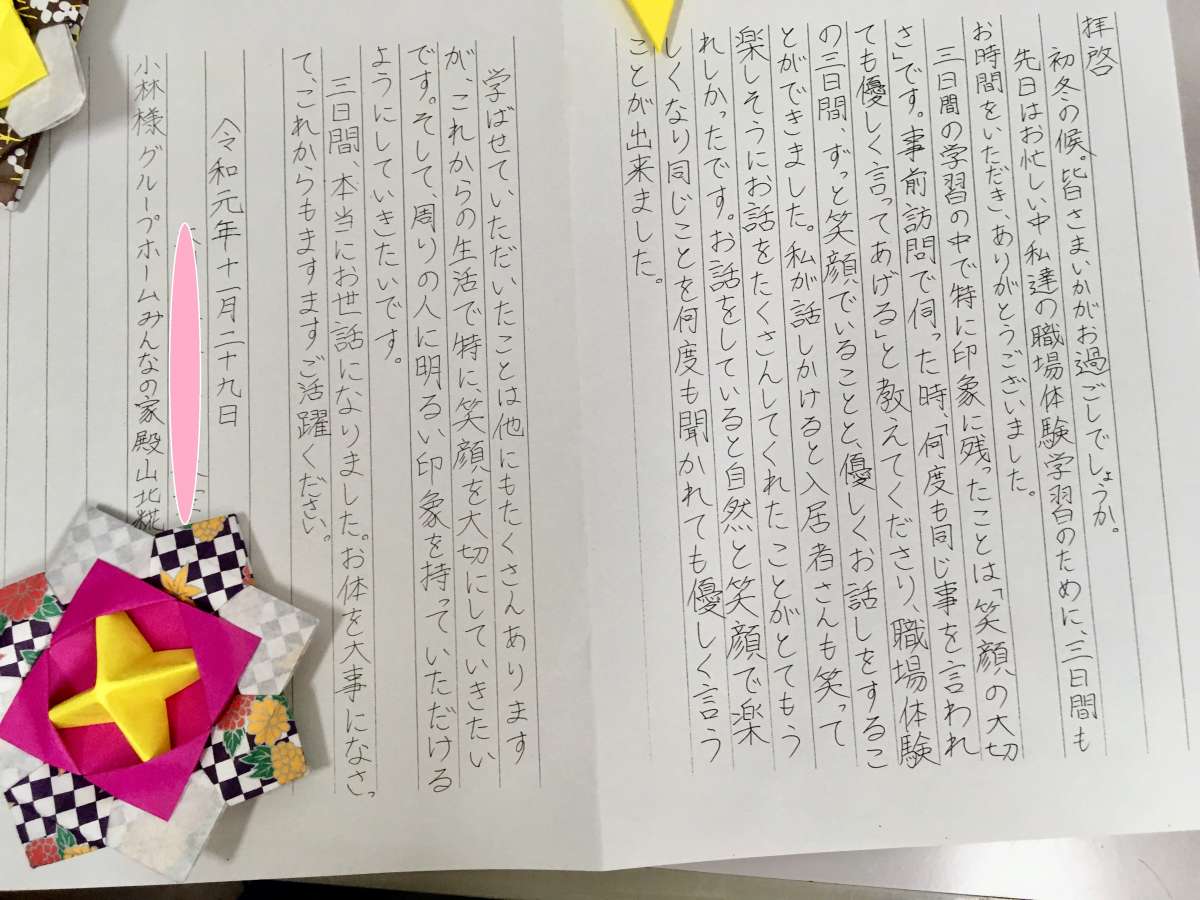 拝啓
初冬の候。皆さまいかがお過ごしでしょうか。
先日はお忙しい中私達の職場体験学習のために、三日間も
お時間をいただき、ありがとうございました。
三日間の学習の中で特に印象に残ったことは「笑顔の大切
さ」です。事前訪問で伺った時、「何度も同じ事を言われ
ても優しく言ってあげる」と教えてくださり、職場体験
の三日間、ずっと笑顔でいることと、優しくお話しをするこ
とができました。私が話しかけると入居者さんも笑って
楽しそうにお話をたくさんしてくれたことがとてもう
れしかったです。お話をしていると自然と笑顔で楽
しくなり同じことを何度も聞かれても優しく言う
ことが出来ました。
学ばせていただいたことは他にもたくさんあります
が、これからの生活で特に、笑顔を大切にしていきたい
です。そして、周りの人に明るい印象を持っていただける
ようにしていきたいです。
三日間、本当にお世話になりました。お体を大事になさっ
て、これからもますますご活躍ください。
令和元年十一月二十九日
小林様 グループホームみんなの家殿山北糀